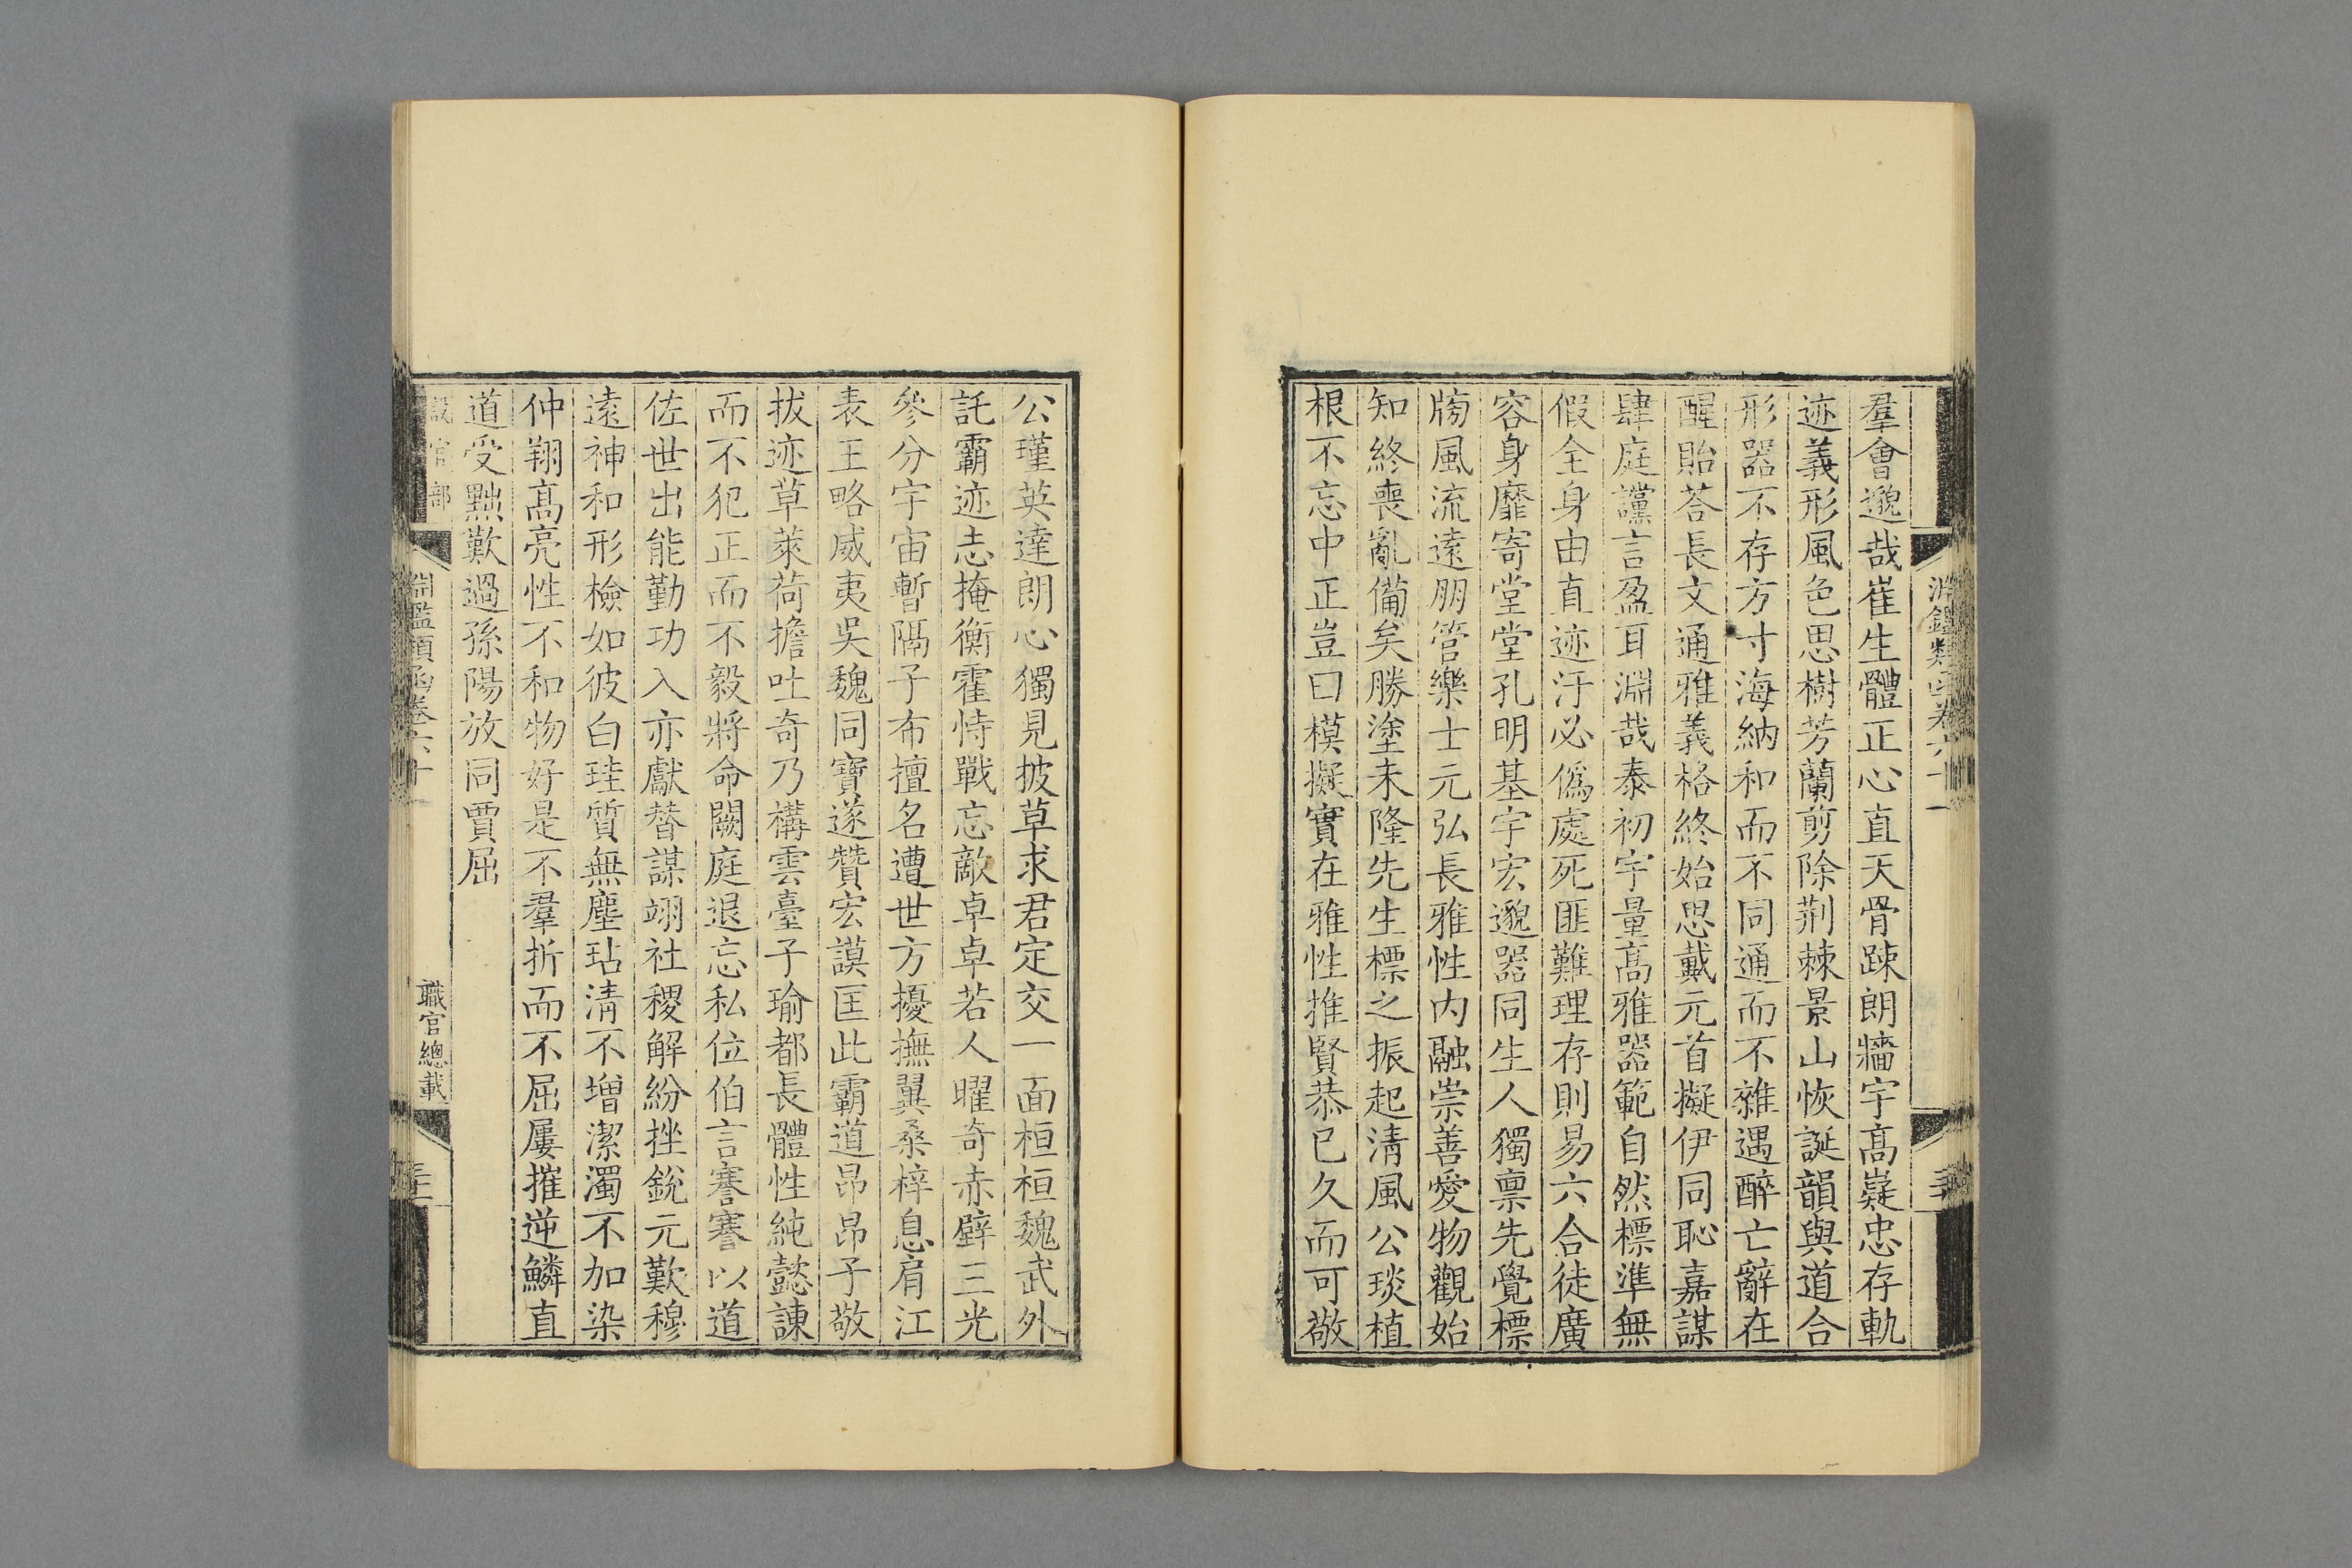 羣會邈哉崔生體正心直天骨踈朗牆宇高嶷忠存軌
迹義形風色思樹芳蘭剪除荆棘景山恢誕韻與道合
形器不存方寸海納和而不同通而不雜遇醉亡辭在
醒貽荅長文通雅義格終始思戴元首擬伊同恥嘉謀
肆庭讜言盈耳淵哉泰初宇量高雅器範自然標準無
假全身由直迹汙必僞處死匪難理存則易六合徒廣
容身靡寄堂堂孔明基宇宏邈器同生人獨禀先覺標
牓風流遠朋管樂士元弘長雅性内融崇善愛物觀始
知終喪亂備矣勝塗未隆先生標之振起淸風公琰植
根不忘中正豈曰模擬實在雅性推賢恭已久而可敬
公瑾英達朗心獨見披草求君定交一面桓桓魏武外
託霸迹志掩衡霍恃戰忘敵卓卓若人曜奇赤壁三光
參分宇宙暫隔子布擅名遭世方擾撫翼桑梓息肩江
表王略威夷吳魏同寶遂贊宏謨匡此霸道昂昂子敬
拔迹草萊荷擔吐奇乃構雲臺子瑜都長體性純懿諫
而不犯正而不毅將命闕庭退忘私位伯言謇謇以道
佐世出能勤功入亦獻替謀翊社稷解紛挫銳元歎穆
遠神和形檢如彼白珪質無塵玷淸不增潔濁不加染
仲翔高亮性不和物好是不羣折而不屈屢摧逆鱗直
道受黜歎過孫陽放同賈屈
設官部
淵鑑類函卷六十
職官總載